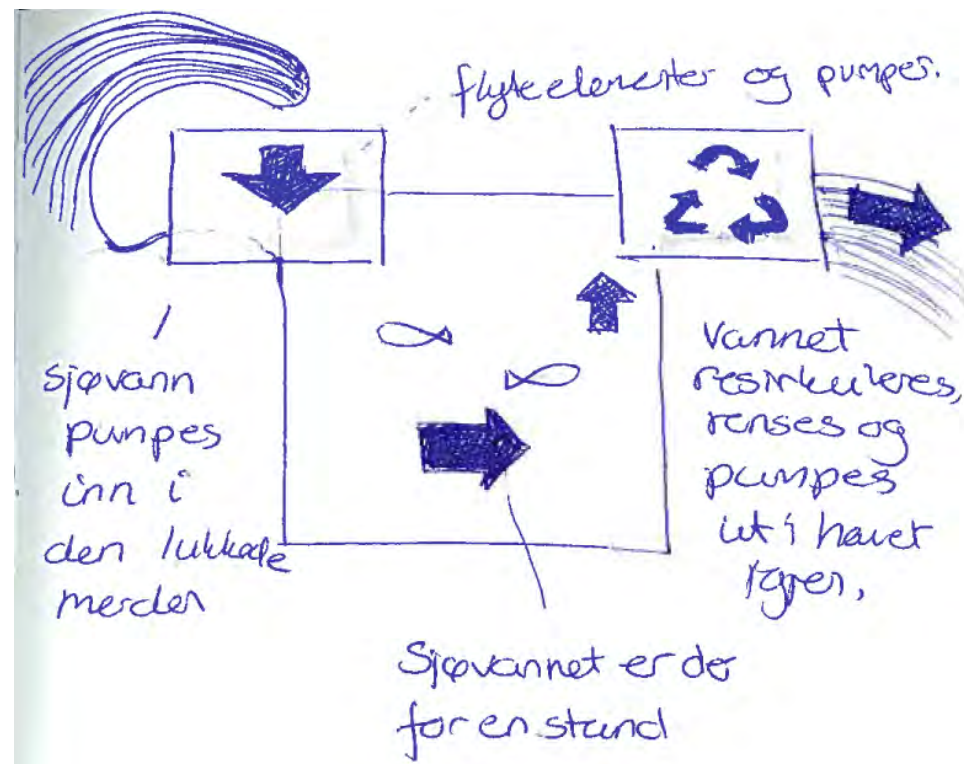 flyteelementer og pumper.
sjøvann
pumpes
inn i
den lukkede
merden
vannet
resirkuleres,
renses og
pumpes
ut i havet
igjen.
Sjøvannet er der
for en stund